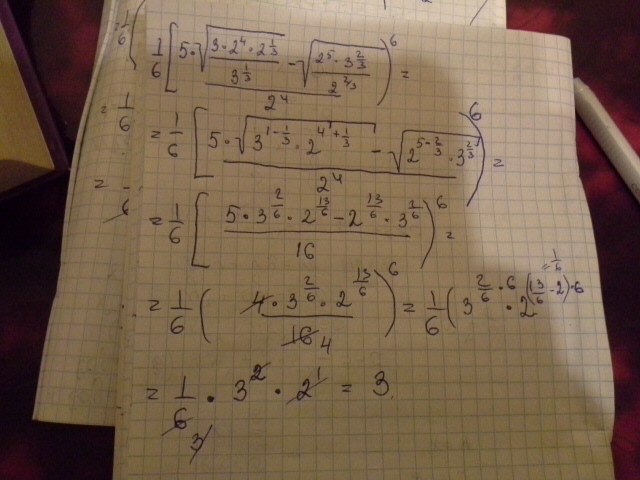 1/6 [ (5·√(3·2^4·2^(1/3) / 3^(1/3)) − √(2^5·3^(2/3) / 2^(2/3))) / 2^4 )^6 =
= 1/6 [ (5·√(3^(1−1/3)·2^(4+1/3)) − √(2^(5−2/3)·3^(2/3))) / 2^4 )^6 =
= 1/6 [ (5·3^(2/6)·2^(13/6) − 2^(13/6)·3^(2/6)) / 16 )^6 =
= 1/6 ( 4·3^(2/6)·2^(13/6) / 16 4 )^6 = 1/6 ( 3^(2/6·6)·2^((13/6−2)·6) = 1/6
= 1/6 · 3^2 · 2^1 = 3.
3